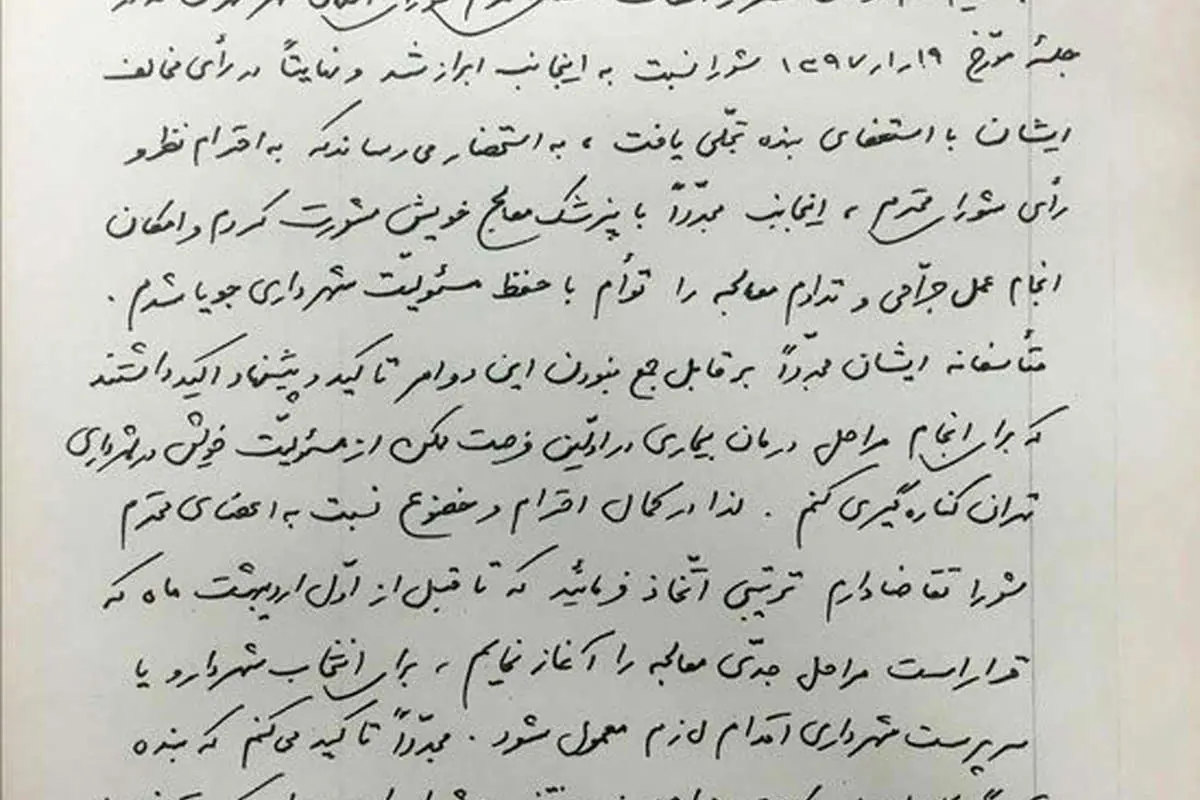 جلسۀ مورّخ ۱۹ر۱ر۱۳۹۷ شورا نسبت به اینجانب ابراز شد و نهایتاً در رأی مخالف
ایشان با استعفای بنده تجلّی یافت ، به استحضار می رساند که به احترام نظر و
رأی شورای محترم ، اینجانب مجدّداً با پزشک معالج خویش مشورت کردم و امکان
انجام عمل جرّاحی و تداوم معالجه را توأم با حفظ مسئولیّت شهرداری جویا شدم .
متأسفانه ایشان مجدّداً بر قابل جمع نبودن این دو امر تاکید و پیشنهاد اکید داشتند
که برای انجام مراحل درمان بیماری در اوّلین فرصت ممکن از مسئولیّت خویش در شهرداری
تهران کناره گیری کنم . لذا در کمال احترام و خضوع نسبت به اعضای محترم
شورا تقاضا دارم ترتیبی اتّخاذ فرمائید که تا قبل از اوّل اردیبهشت ماه که
قرار است مراحل جدّی معالجه را آغاز نمایم ، برای انتخاب شهردار و یا
سرپرست شهرداری اقدام لازم معمول شود . مجدّداً تاکید می کنم که بنده